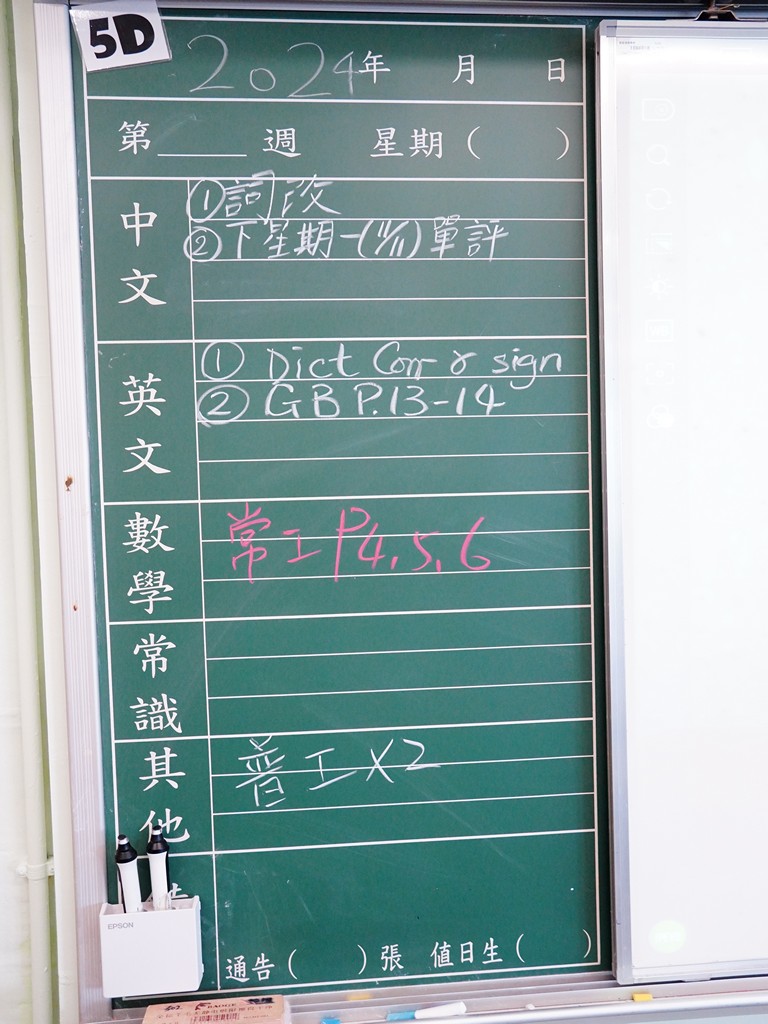 5D
2024年 月 日
第____週 星期( )
中文
①詞改
②下星期一(11/11)單評
英文
① Dict Corr & sign
② GB P.13-14
數學
常工 P4,5,6
常識
其他
普工 X2
通告( )張 值日生( )
EPSON